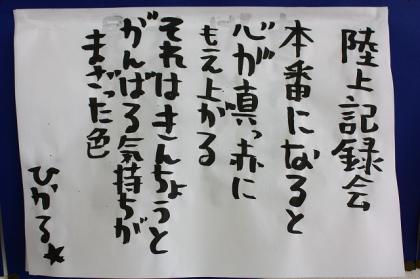 陸上記録会
本番になると
心が真っ赤に
もえ上がる
それはきんちょうと
がんばる気持ちが
まざった色
ひかる☆